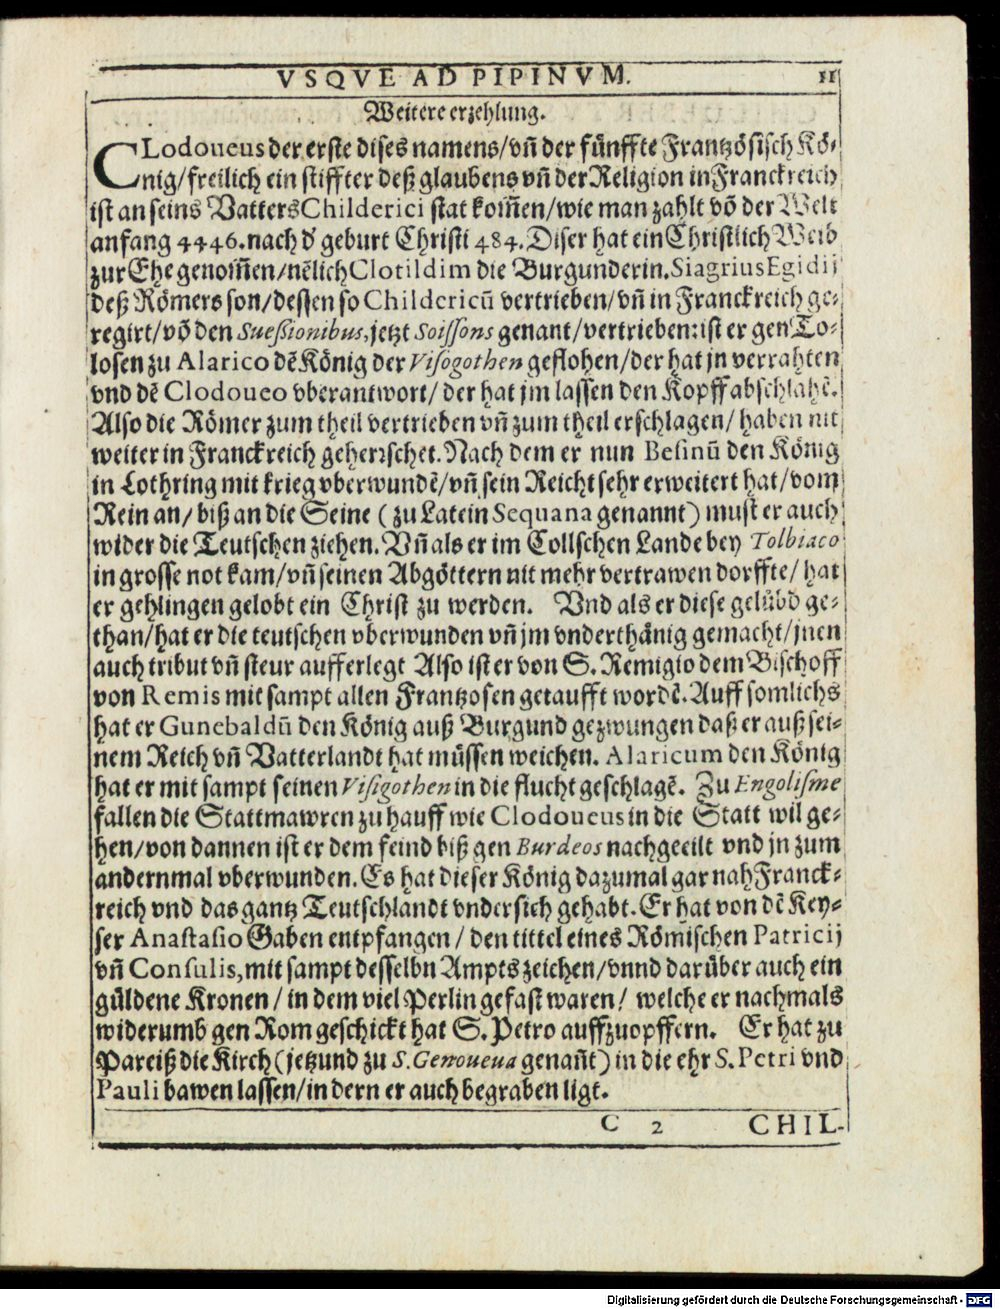 VSQVE AD PIPINVM. 11
Weitere erzehlung.
CLodoueus der erste dises namens/vñ der fünffte Frantzösisch Kö-
nig/freilich ein stiffter deß glaubens vñ der Religion in Franckreich
ist an seins Vatters Childerici stat kom̃en/wie man zahlt võ der Welt
anfang 4446. nach d' geburt Christi 484. Diser hat ein Christlich Weib
zur Ehe genom̃en/nẽlich Clotildim die Burgunderin. Siagrius Egidij
deß Römers son/dessen so Childericũ vertrieben/vñ in Franckreich ge-
regirt/võ den Sueßionibus, jetzt Soissons genant/vertrieben: ist er gen To-
losen zu Alarico dẽ König der Visogothen geflohen/der hat jn verrahten
vnd dẽ Clodoueo vberantwort/ der hat jm lassen den Kopff abschlahẽ.
Also die Römer zum theil vertrieben vñ zum theil erschlagen/ haben nit
weiter in Franckreich geherrschet. Nach dem er nun Besinũ den König
in Lothring mit krieg vberwundẽ/vñ sein Reicht sehr erweitert hat/vom
Rein an/ biß an die Seine (zu Latein Sequana genannt) must er auch
wider die Teutschen ziehen. Vñ als er im Collschen Lande bey Tolbiaco
in grosse not kam/vñ seinen Abgöttern nit mehr vertrawen dorffte/ hat
er gehlingen gelobt ein Christ zu werden. Vnd als er diese gelübd ge-
than/hat er die teutschen vberwunden vñ jm vnderthänig gemacht/jnen
auch tribut vñ steur aufferlegt Also ist er von S. Remigio dem Bischoff
von Remis mit sampt allen Frantzosen getaufft wordẽ. Auff somlichs
hat er Gunebaldũ den König auß Burgund gezwungen daß er auß sei-
nem Reich vñ Vatterlandt hat müssen weichen. Alaricum den König
hat er mit sampt seinen Visigothen in die flucht geschlagẽ. Zu Engolisme
fallen die Stattmawren zu hauff wie Clodoueus in die Statt wil ge-
hen/von dannen ist er dem feind biß gen Burdeos nachgeeilt vnd jn zum
andernmal vberwunden. Es hat dieser König dazumal gar nah Franck-
reich vnd das gantz Teutschlandt vnder sich gehabt. Er hat von dẽ Key-
ser Anastasio Gaben entpfangen / den tittel eines Römischen Patricij
vñ Consulis, mit sampt desselbn Ampts zeichen/vnnd darüber auch ein
güldene Kronen / in dem viel Perlin gefast waren/ welche er nachmals
widerumb gen Rom geschickt hat S. Petro auffzuopffern. Er hat zu
Pareiß die Kirch (jetzund zu S. Genoueua genañt) in die ehr S. Petri vnd
Pauli bawen lassen/in dern er auch begraben ligt.
C 2 CHIL-
Digitalisierung gefördert durch die Deutsche Forschungsgemeinschaft - DFG